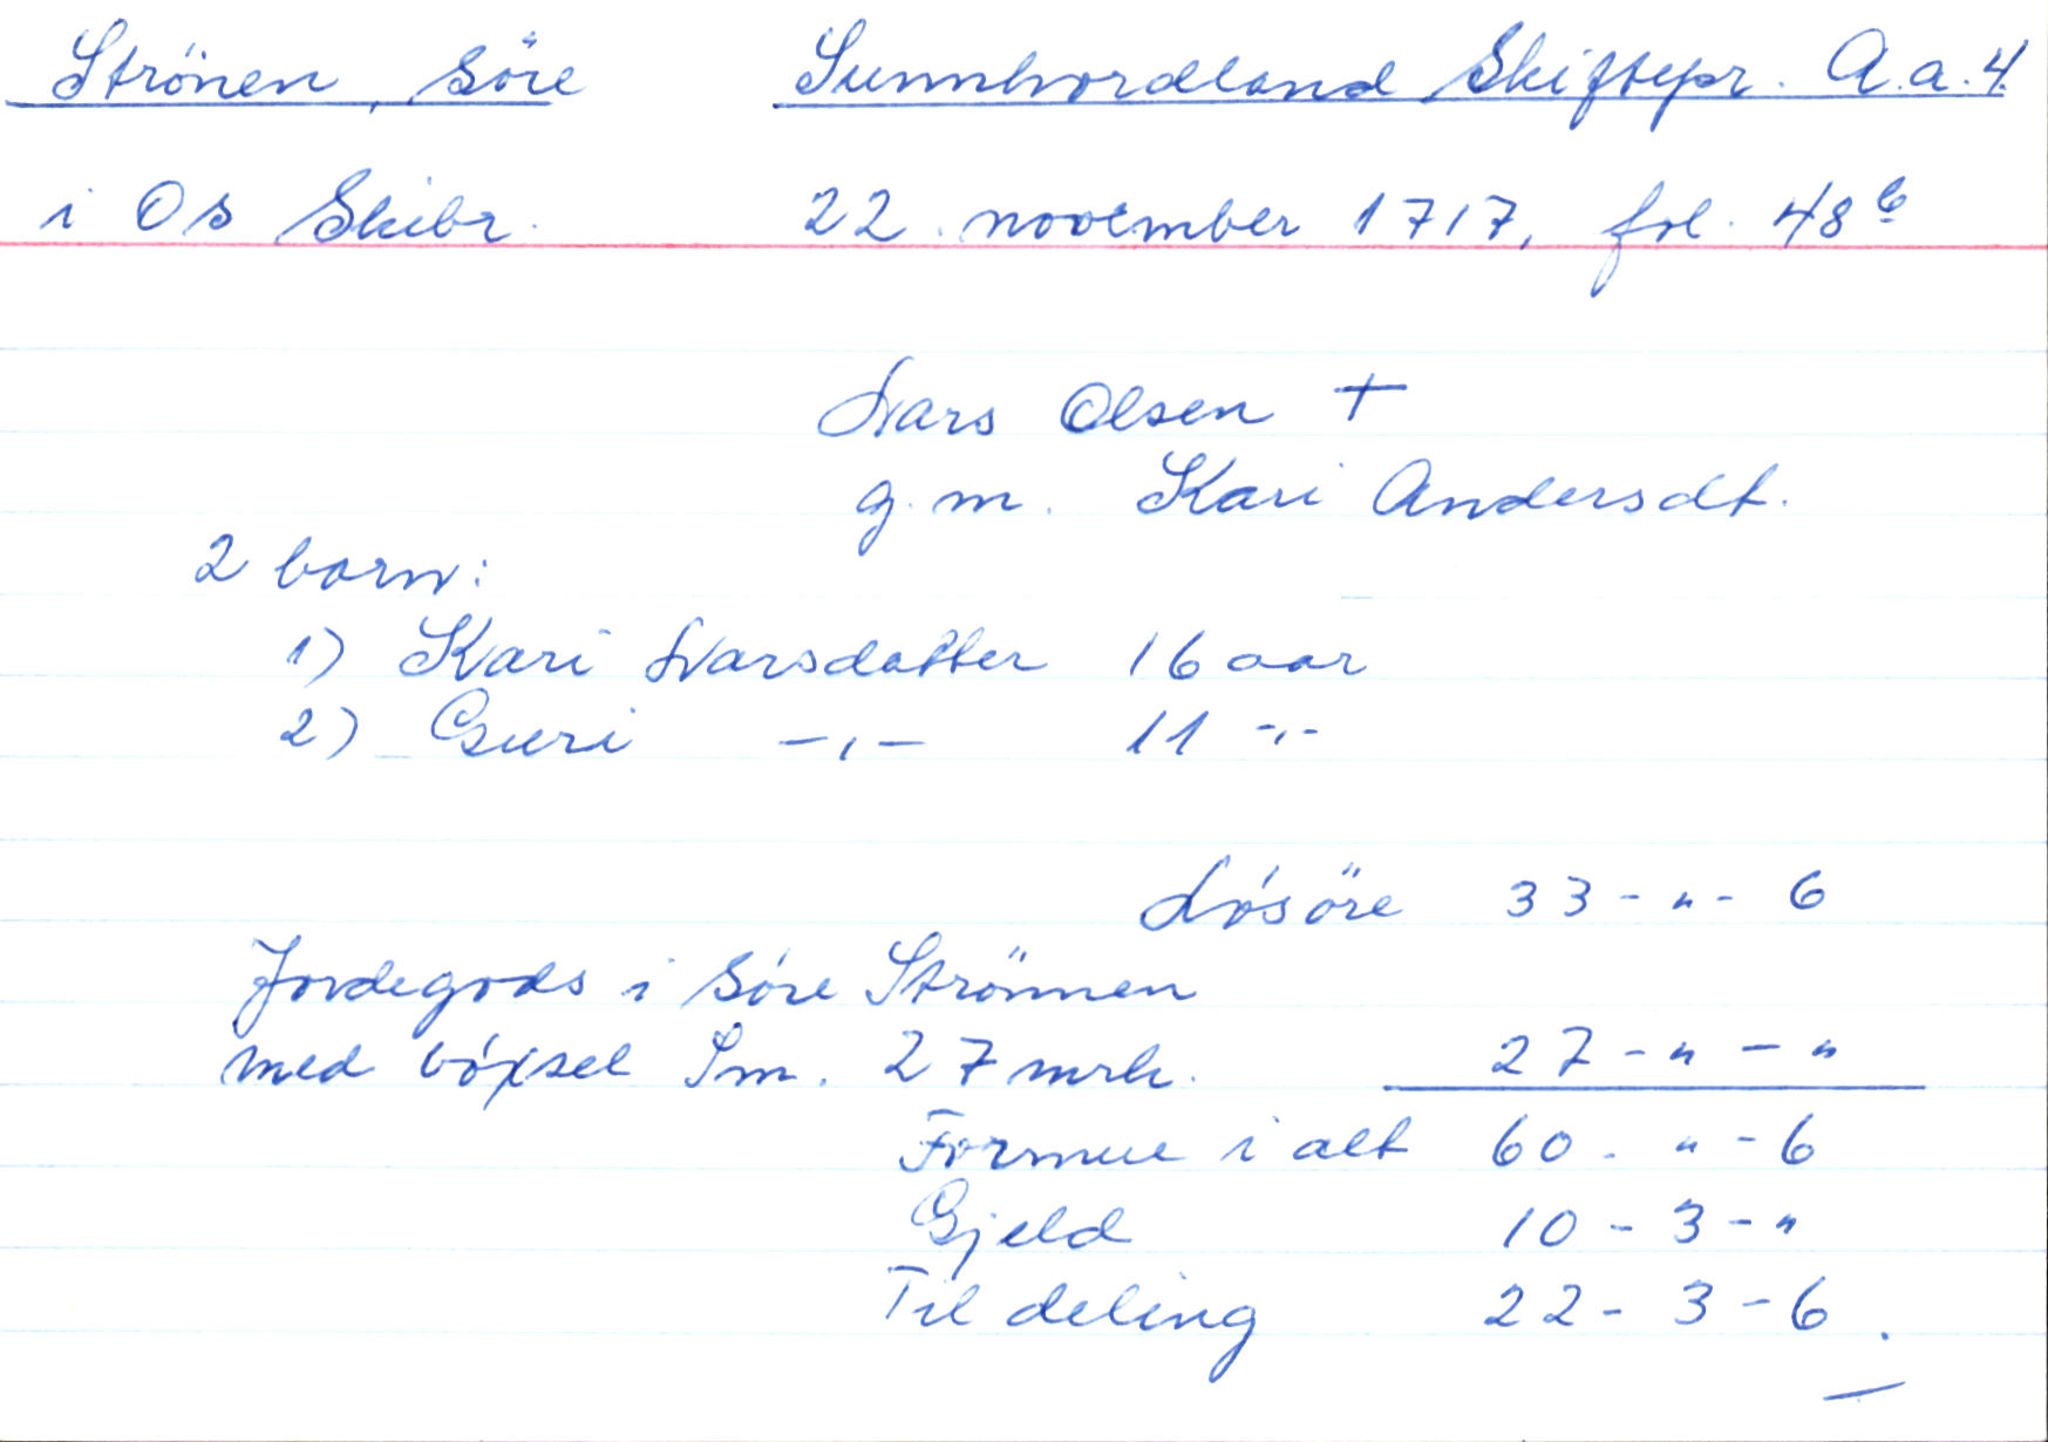 Strönen, Söre Sunnhordland Skiftepr. A.a.4.
i Os Skibr. 22. november 1717, fol. 48 b
Lars Olsen +
g.m. Kari Andersdt.
2 born:
1) Kari Larsdatter 16 aar
2) Guri -,- 11 -,-
Lösöre 33 - " - 6
Jordegods i Söre Strönnen
med böxsel Sm. 27 mrk. 27 - " - "
Formue i alt 60 - " - 6
Gjeld 10 - 3 - "
Til deling 22 - 3 - 6.